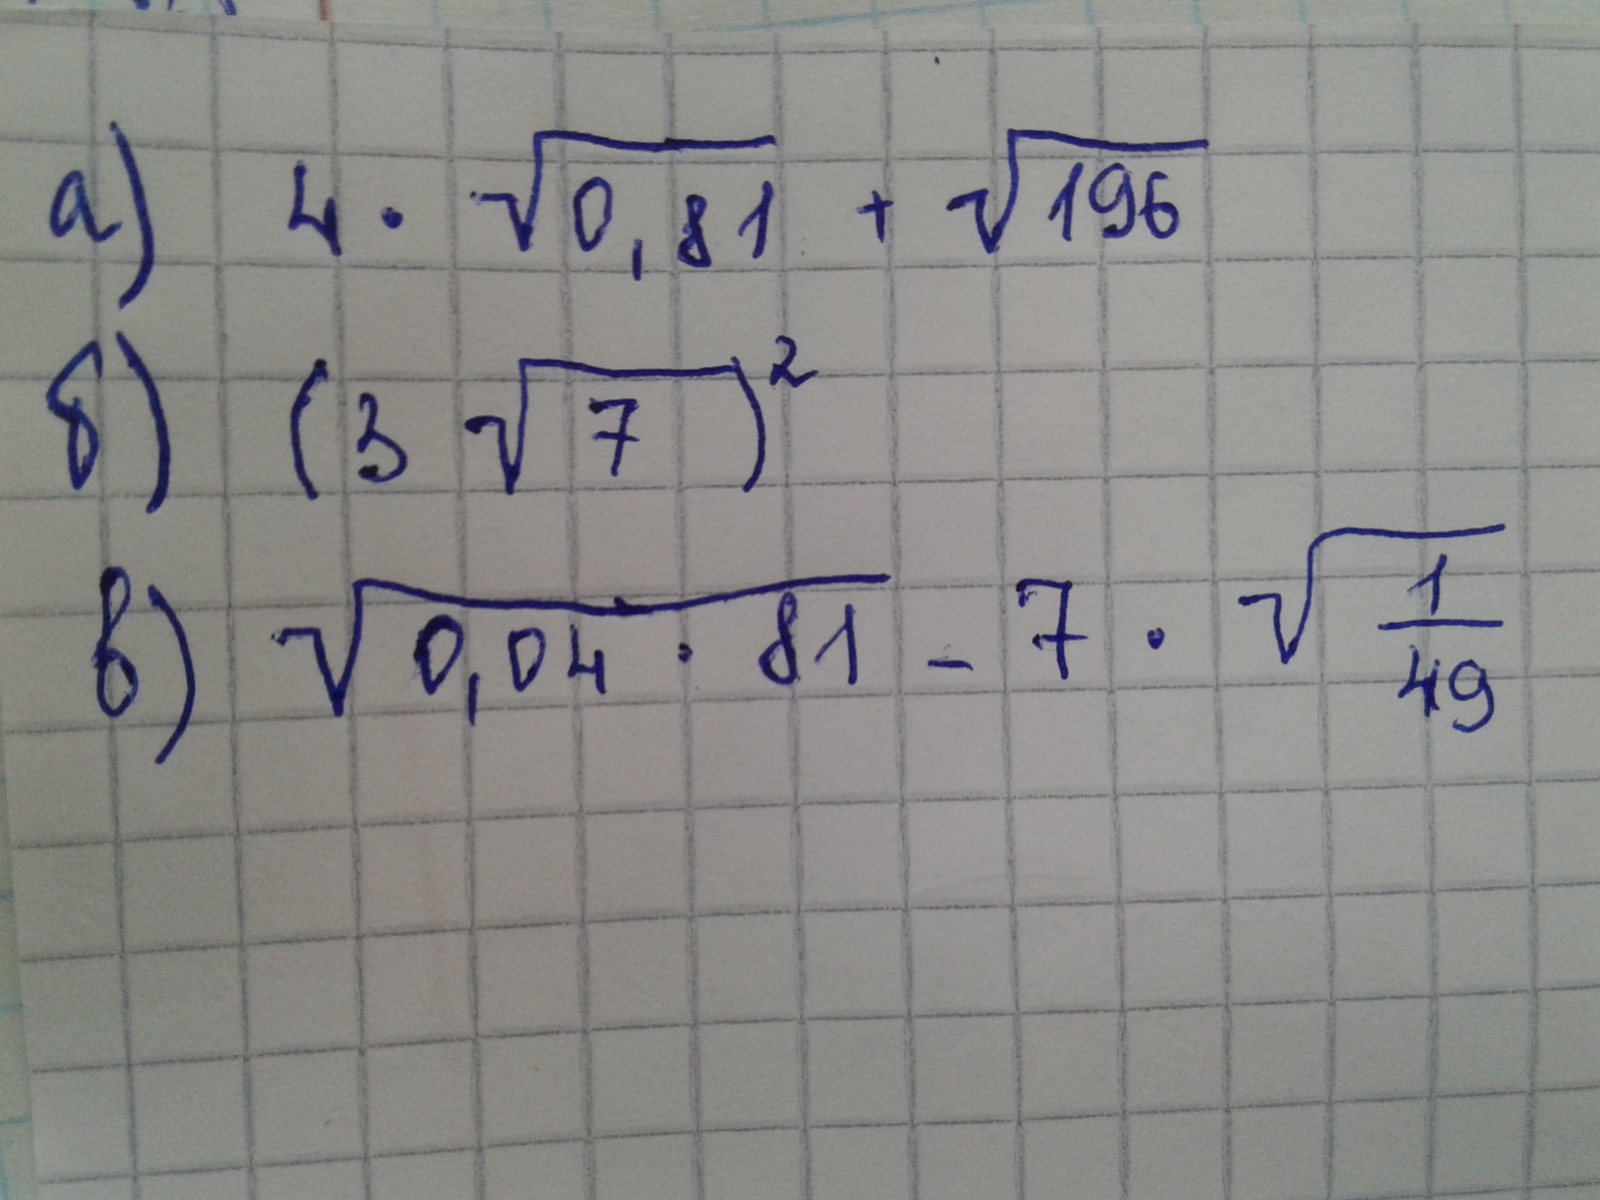 а) 4 · √0,81 + √196
б) (3√7)²
в) √0,04 · 81 - 7 · √1/49